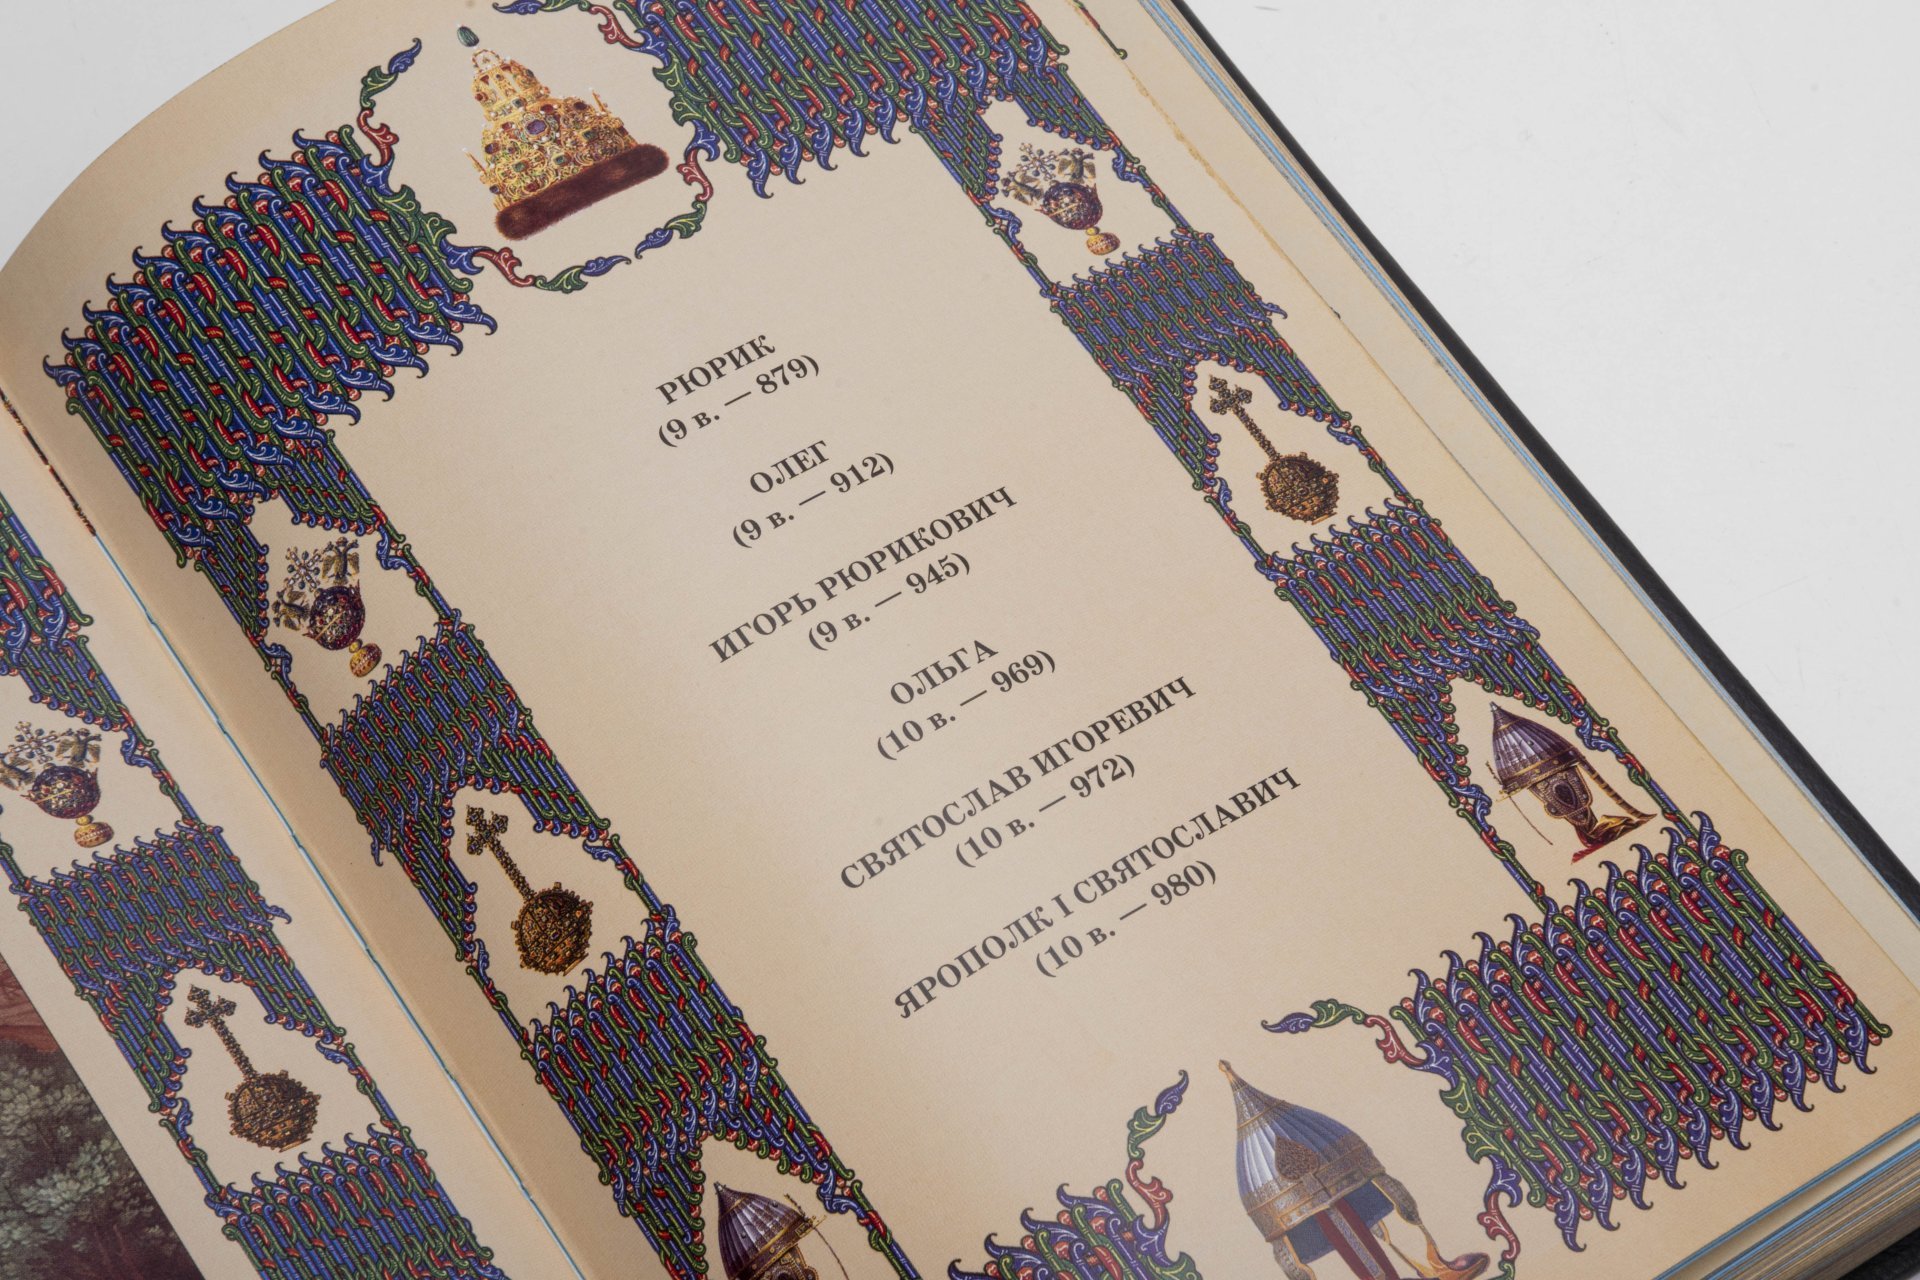 РЮРИК
(9 в. — 879)
ОЛЕГ
(9 в. — 912)
ИГОРЬ РЮРИКОВИЧ
(9 в. — 945)
ОЛЬГА
(10 в. — 969)
СВЯТОСЛАВ ИГОРЕВИЧ
(10 в. — 972)
ЯРОПОЛК I СВЯТОСЛАВИЧ
(10 в. — 980)